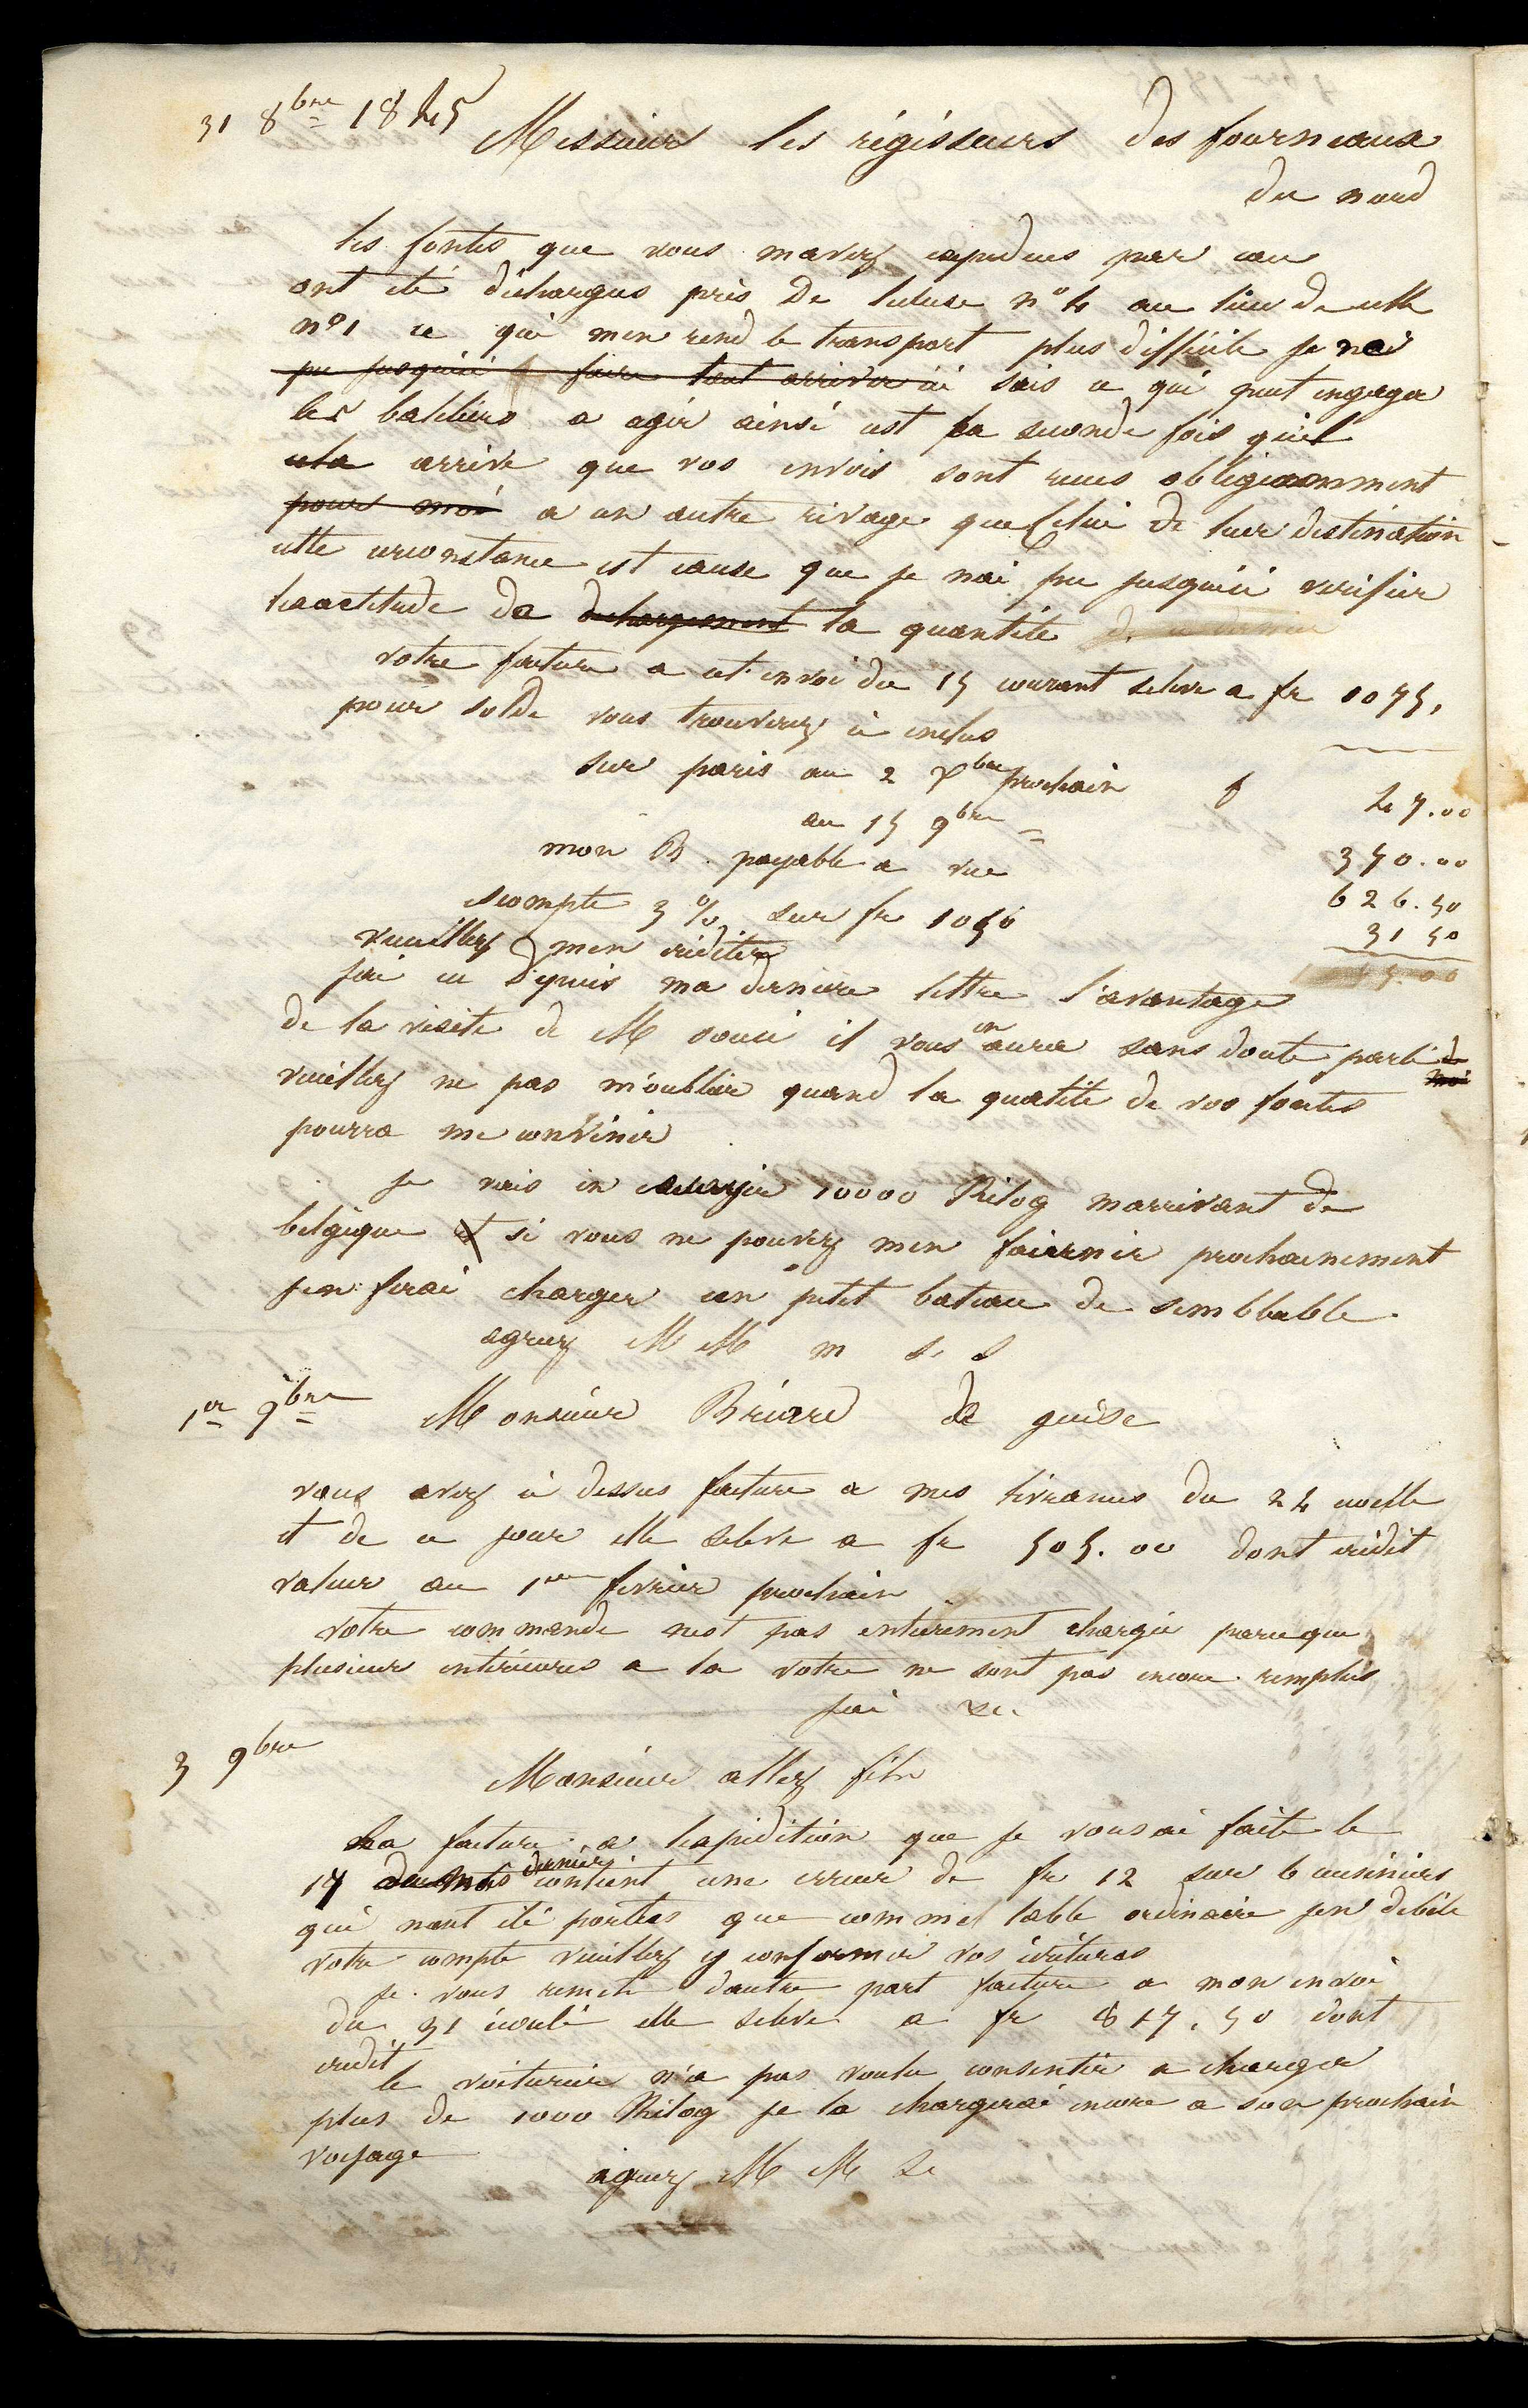 31 8bre 1845
Messieurs les régisseurs des fourneaux
du nord
les fontes que vous mavez expediees par eau
ont été déchargees près De lecluse n° 4 au lieu de celle
n° 1 ce qui men rend le transport plus difficile je nai
pu jusquici faire tout arriver ici sais ce qui peut engager
les bateliers a agir ainsi cest la seconde fois quil
cela arrive que vos envois sont recus obligeamment
pour moi a un autre rivage que Celui de leur destination
cette circonstance est cause que je nai pu jusquici verifier
lexactitude da dechargement la quantité
votre facture a cet envoi du 15 courant seleve a fr 1075,
pour solde vous trouverez ci inclus
sur paris au 2 Xbre prochain f 47.00
au 15 9bre = 370.00
mon B. payable a vue 626.50
escompte 3 % sur fr 1050 31 50
veuillez men créditer
jai eu depuis ma derniere lettre l'avantage
de la visite de M soucé il vous en aura sans doute parlé de
moi
veuillez ne pas m'oublier quand la quatité de vos fontes
pourra me convenir
je vais en 10000 Kilog marrivant de
belgique et si vous ne pouvez men fournir prochainement
jen ferai charger un petit bateau de semblable
agreez M M m s. s
1er 9bre Monsieur Briard de guise
vous avez ci dessus facture a mes livrances du 24 ecoulé
et de ce jour elle seleve a fr 505.00 dont crédit
valeur au 1er fevrier prochain
votre commande nest pas entièrement chargée parceque
plusieur antérieures a la votre ne sont pas encore remplies
jai &c.
3 9bre
Monsieur allez fils
La facture a lexpédition que je vous ai faite le
17 du mois dernier contient une erreur de fr 12 sur 6 cuisinieres
qui nont été portées que comme table ordinaire jen débite
votre compte veuillez y conformer vos écritures
je vous remets dautre part facture a mon envoi
du 31 écoulé elle seleve a fr 817.50 dont
credit
le voiturier n'a pas voulu consentir a charger
plus de 1000 Kilog je la chargerai encore a son prochain
voyage
agreez M M Se